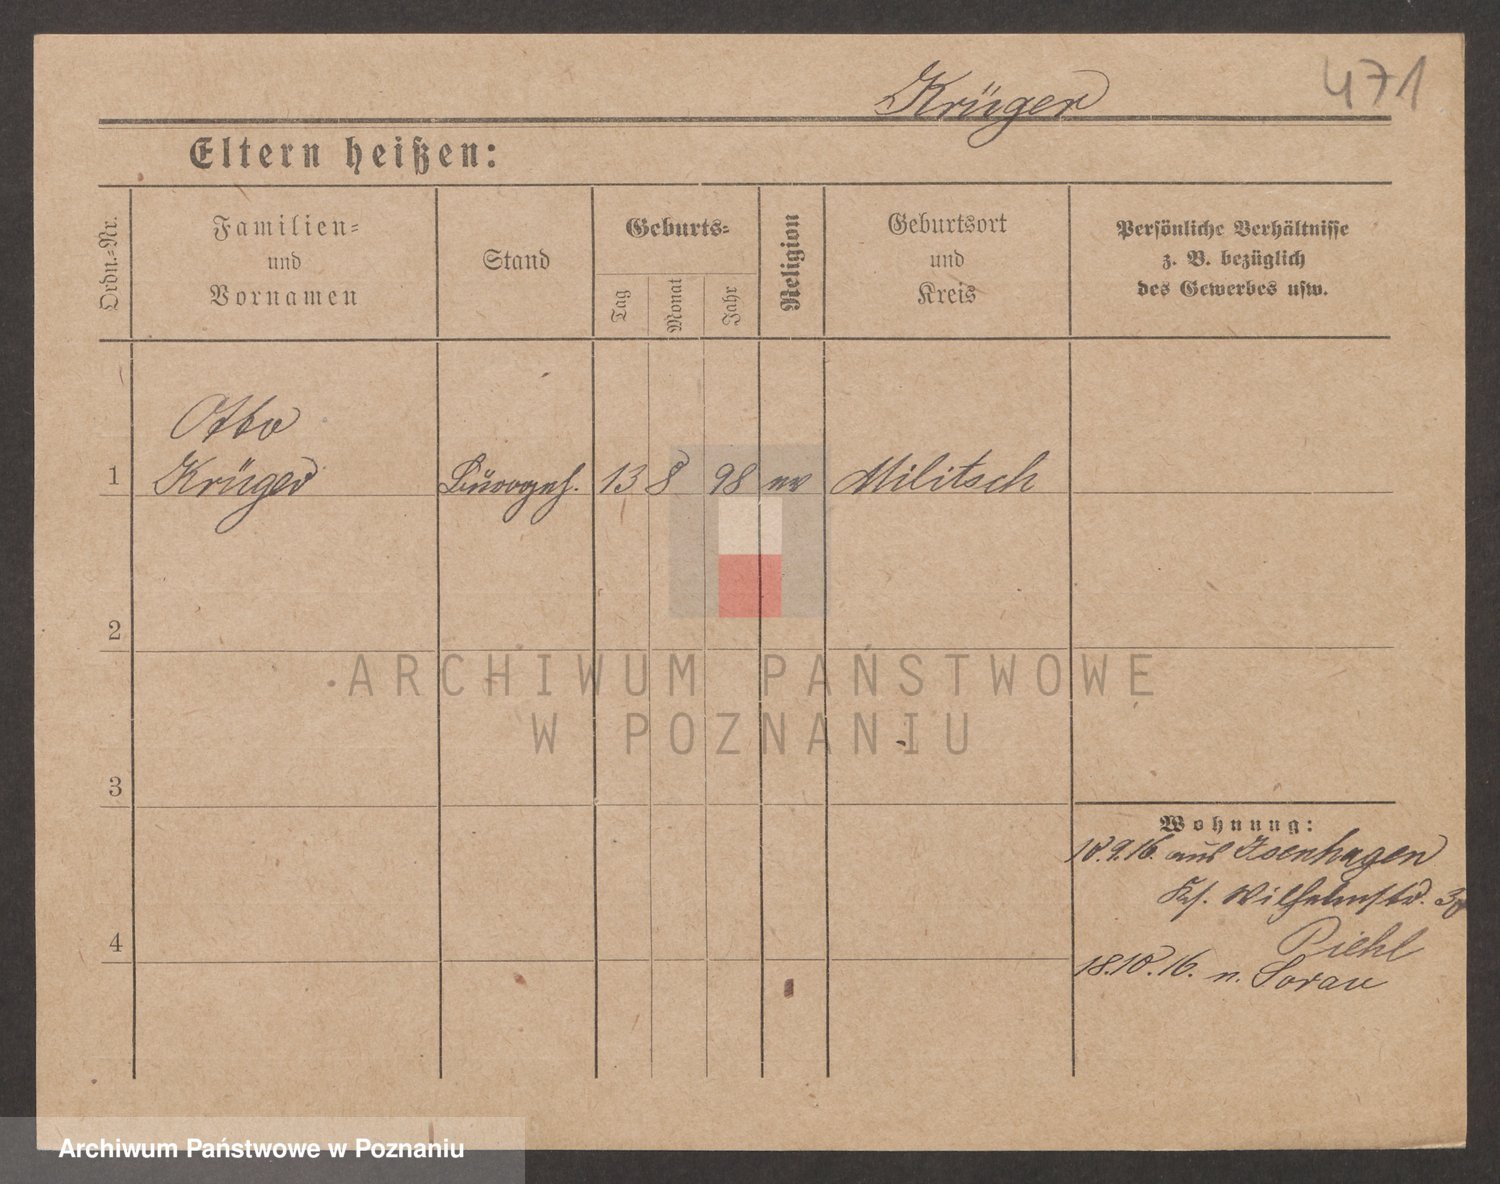 471
Krüger
Eltern heißen:
Ordn.-Nr.
Familien-
und
Vornamen
Stand
Geburts-
Tag
Monat
Jahr
Religion
Geburtsort
und
Kreis
Persönliche Verhältnisse
z. B. bezüglich
des Gewerbes usw.
Otto
1 Krüger Bürogeh. 13 8 98 ev Militsch
2
3
4
Wohnung:
18.9.16. aus Isenhagen
Wilhelmstr.
Piehl
18.10.16. n. Sorau
ARCHIWUM PAŃSTWOWE
W POZNANIU
Archiwum Państwowe w Poznaniu